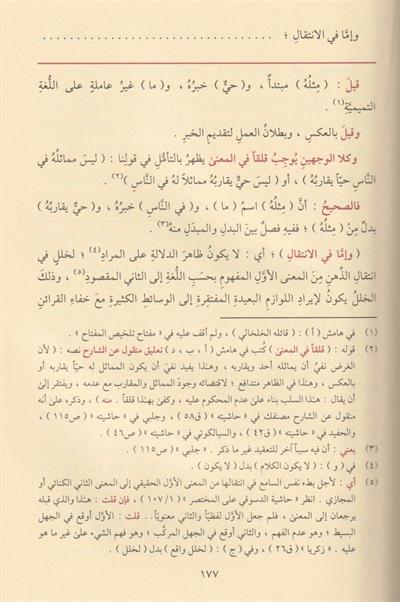 وإمَّا في الانتقالِ ؛ . . . . . . . . . . . . . . . . . . . . . . . . . . . . . . . .
قيلَ : ( مِثلُهُ ) مبتدأٌ ، و( حيٌّ ) خبرُهُ ، و( ما ) غيرُ عاملةٍ على اللُّغةِ
التميميَّةِ(١) .
وقيلَ بالعكسِ ، وبطلانُ العملِ لتقديمِ الخبرِ .
وكلا الوجهينِ يُوجِبُ قلقاً في المعنى يظهرُ بالتأمُّلِ في قولِنا : ( ليسَ مماثلُهُ في
النَّاسِ حيّاً يقاربُهُ ) ، أو ( ليسَ حيٌّ يقاربُهُ مماثلاً لهُ في النَّاسِ )(٢) .
فالصحيحُ : أنَّ ( مِثلُهُ ) اسمُ ( ما ) ، و( في النَّاسِ ) خبرُهُ ، و( حيٌّ يقاربُهُ )
بدلٌ مِنْ ( مِثلُهُ ) ؛ ففيهِ فصلٌ بينَ البدلِ والمبدَلِ منهُ(٣) .
( وإمَّا في الانتقالِ ) ؛ أي : لا يكونُ ظاهرَ الدلالةِ على المرادِ(٤) ؛ لخللٍ في
انتقالِ الذِّهنِ مِنَ المعنى الأوَّلِ المفهومِ بحسَبِ اللُّغةِ إلى الثاني المقصودِ(٥) ، وذلكَ
الخللُ يكونُ لإيرادِ اللوازمِ البعيدةِ المفتقِرةِ إلى الوسائطِ الكثيرةِ معَ خفاءِ القرائنِ
(١) في هامش ( أ ) : ( قائله الخلخالي ) ، ولم أقف عليه في « مفتاح تلخيص المفتاح » .
(٢) قوله : ( قلقاً في المعنى ) كُتب في هامش ( أ ، ب ، د ) تعليق منقول عن الشارح نصه : ( لأن
الغرض نفيُ أن يماثله أحد ويقاربه ، وهذا يفيد نفيَ أن يكون المماثل له حيّاً يقاربه أو
بالعكس ، وهذا في الظاهر متدافع ؛ لاقتضائه وجودَ المماثل والمقارب مع عدمه ، ويفتقر إلى
أن يقال : هذا السلب بناء على عدم المحكوم عليه ، وكفىٰ بهذا قلقاً . منه ) ، وذكره على أنه
منقول عن الشارح مصنفك في « حاشيته » ( ق٥٨ ) ، وجلبي في « حاشيته » ( ص١١٥ ) ،
والحفيد في « حاشيته » ( ق٤٢ ) ، والسيالكوتي في « حاشيته » ( ص٤٦ ) .
(٣) يعني : أن فيه سبباً آخر للتعقيد غير ما ذكر . « جلبي » ( ص١١٥ ) .
(٤) في ( و ) : ( لا يكون الكلام ) بدل ( لا يكون ) .
(٥) أي : لأجل بطء نفس السامع في انتقالها من المعنى الأوَّل الحقيقي إلى المعنى الثاني الكنائي أو
المجازي . انظر « حاشية الدسوقي على المختصر » ( ١٠٧/١ ) ، فإن قلت : هذا والذي قبله
يرجعان إلى المعنىٰ ، فلم جعل الأوَّل لفظيّاً والثاني معنويّاً.. قلت : الأوَّل أوقع في الجهل
البسيط ؛ وهو عدم الفهم ، والثاني أوقع في الجهل المركَّب ؛ وهو فهم الشيء على غير ما هو
عليه . « زكريا » ( ق٢٦ ) ، وفي ( ج ) : ( لخلل واقع ) بدل ( لخلل ) .
١٧٧